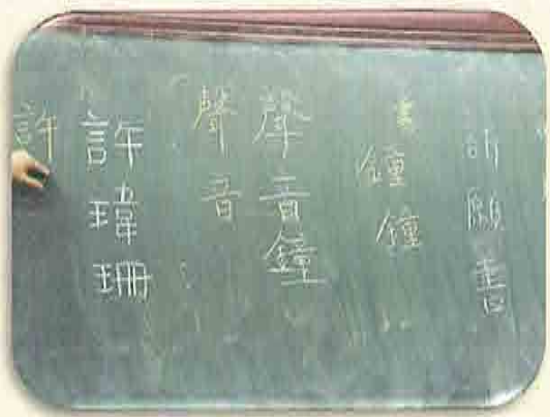 願書
鐘鐘
聲音鐘
聲音
許瑋珊
許